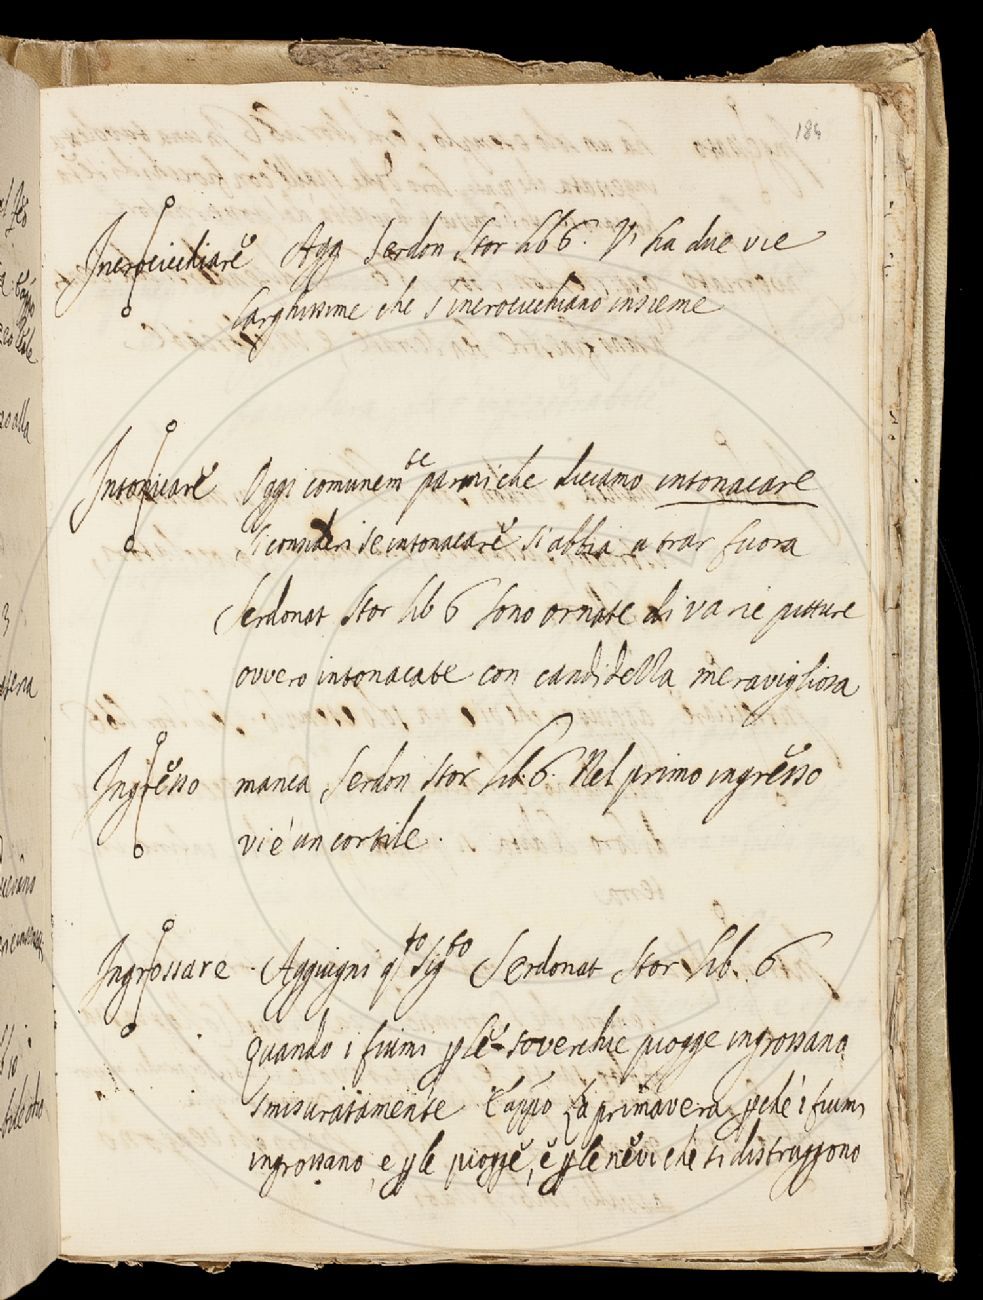 184
Incrocicchiare Agg Serdon Stor lib 6. Vi ha due vie
larghissime che s'incrocicchiano insieme
Intonicare Oggi comunemte parmi che diciamo intonacare
si consideri se intonacare si abbia a trar fuora
Serdonat Stor lib 6 sono ornate di varie pitture
ovvero intonacate con candidezza meravigliosa
Ingresso manca Serdon Stor lib. 6. Nel primo ingresso
vi è un cortile.
Ingrossare Aggiugni qto sigto Serdonat Stor lib. 6
quando i fiumi p le soverchie piogge ingrossano
smisuratamente E appo La primavera p che i fiumi
ingrossano, e p le piogge, e p le nevi che si distruggono